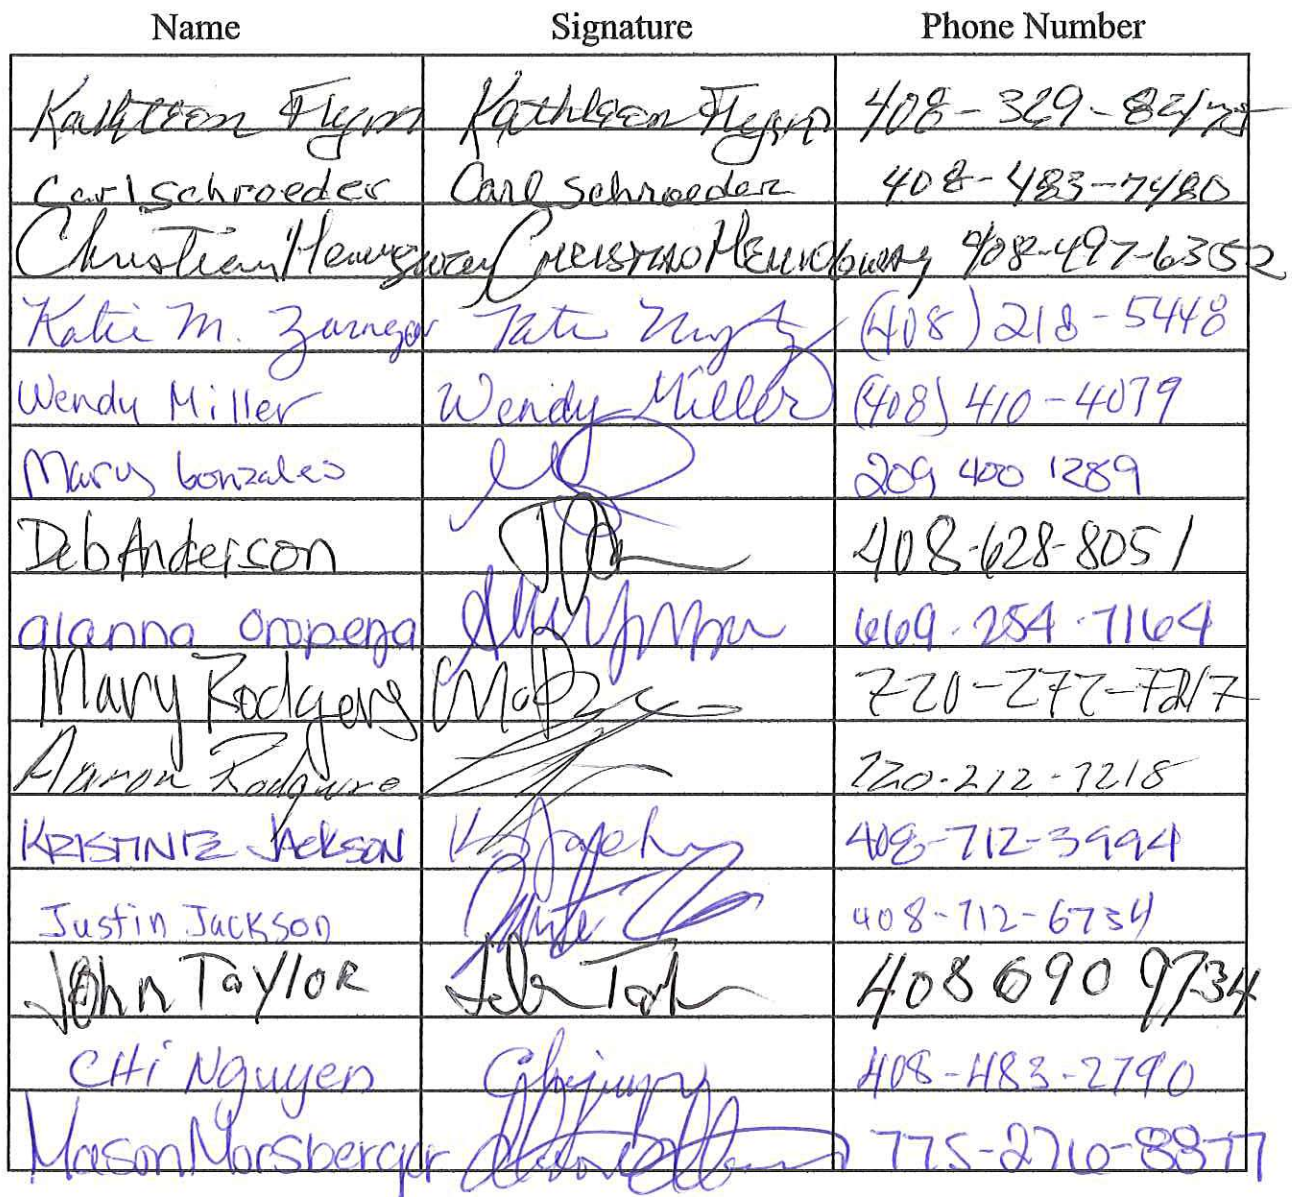 Name Signature Phone Number
Kathleen Flynn Kathleen Flynn 408-329-8475
Carl Schroeder Carl Schroeder 408-483-7480
Christian Hemingway Christian Hemingway 408-497-6352
Katie M. (408) 218-5448
Wendy Miller Wendy Miller (408) 410-4079
Mary Gonzales 209 400 1289
Deb Anderson 408-628-8051
gianna oropeza 669.254.7164
Mary Rodgers 720-272-7217
Aaron Rodgers 720-212-7218
KRISTINE JACKSON K Jackson 408-712-3994
Justin Jackson 408-712-6734
John Taylor 408 690 9734
CHi Nguyen 408-483-2790
Mason Morsberger 775-276-8877